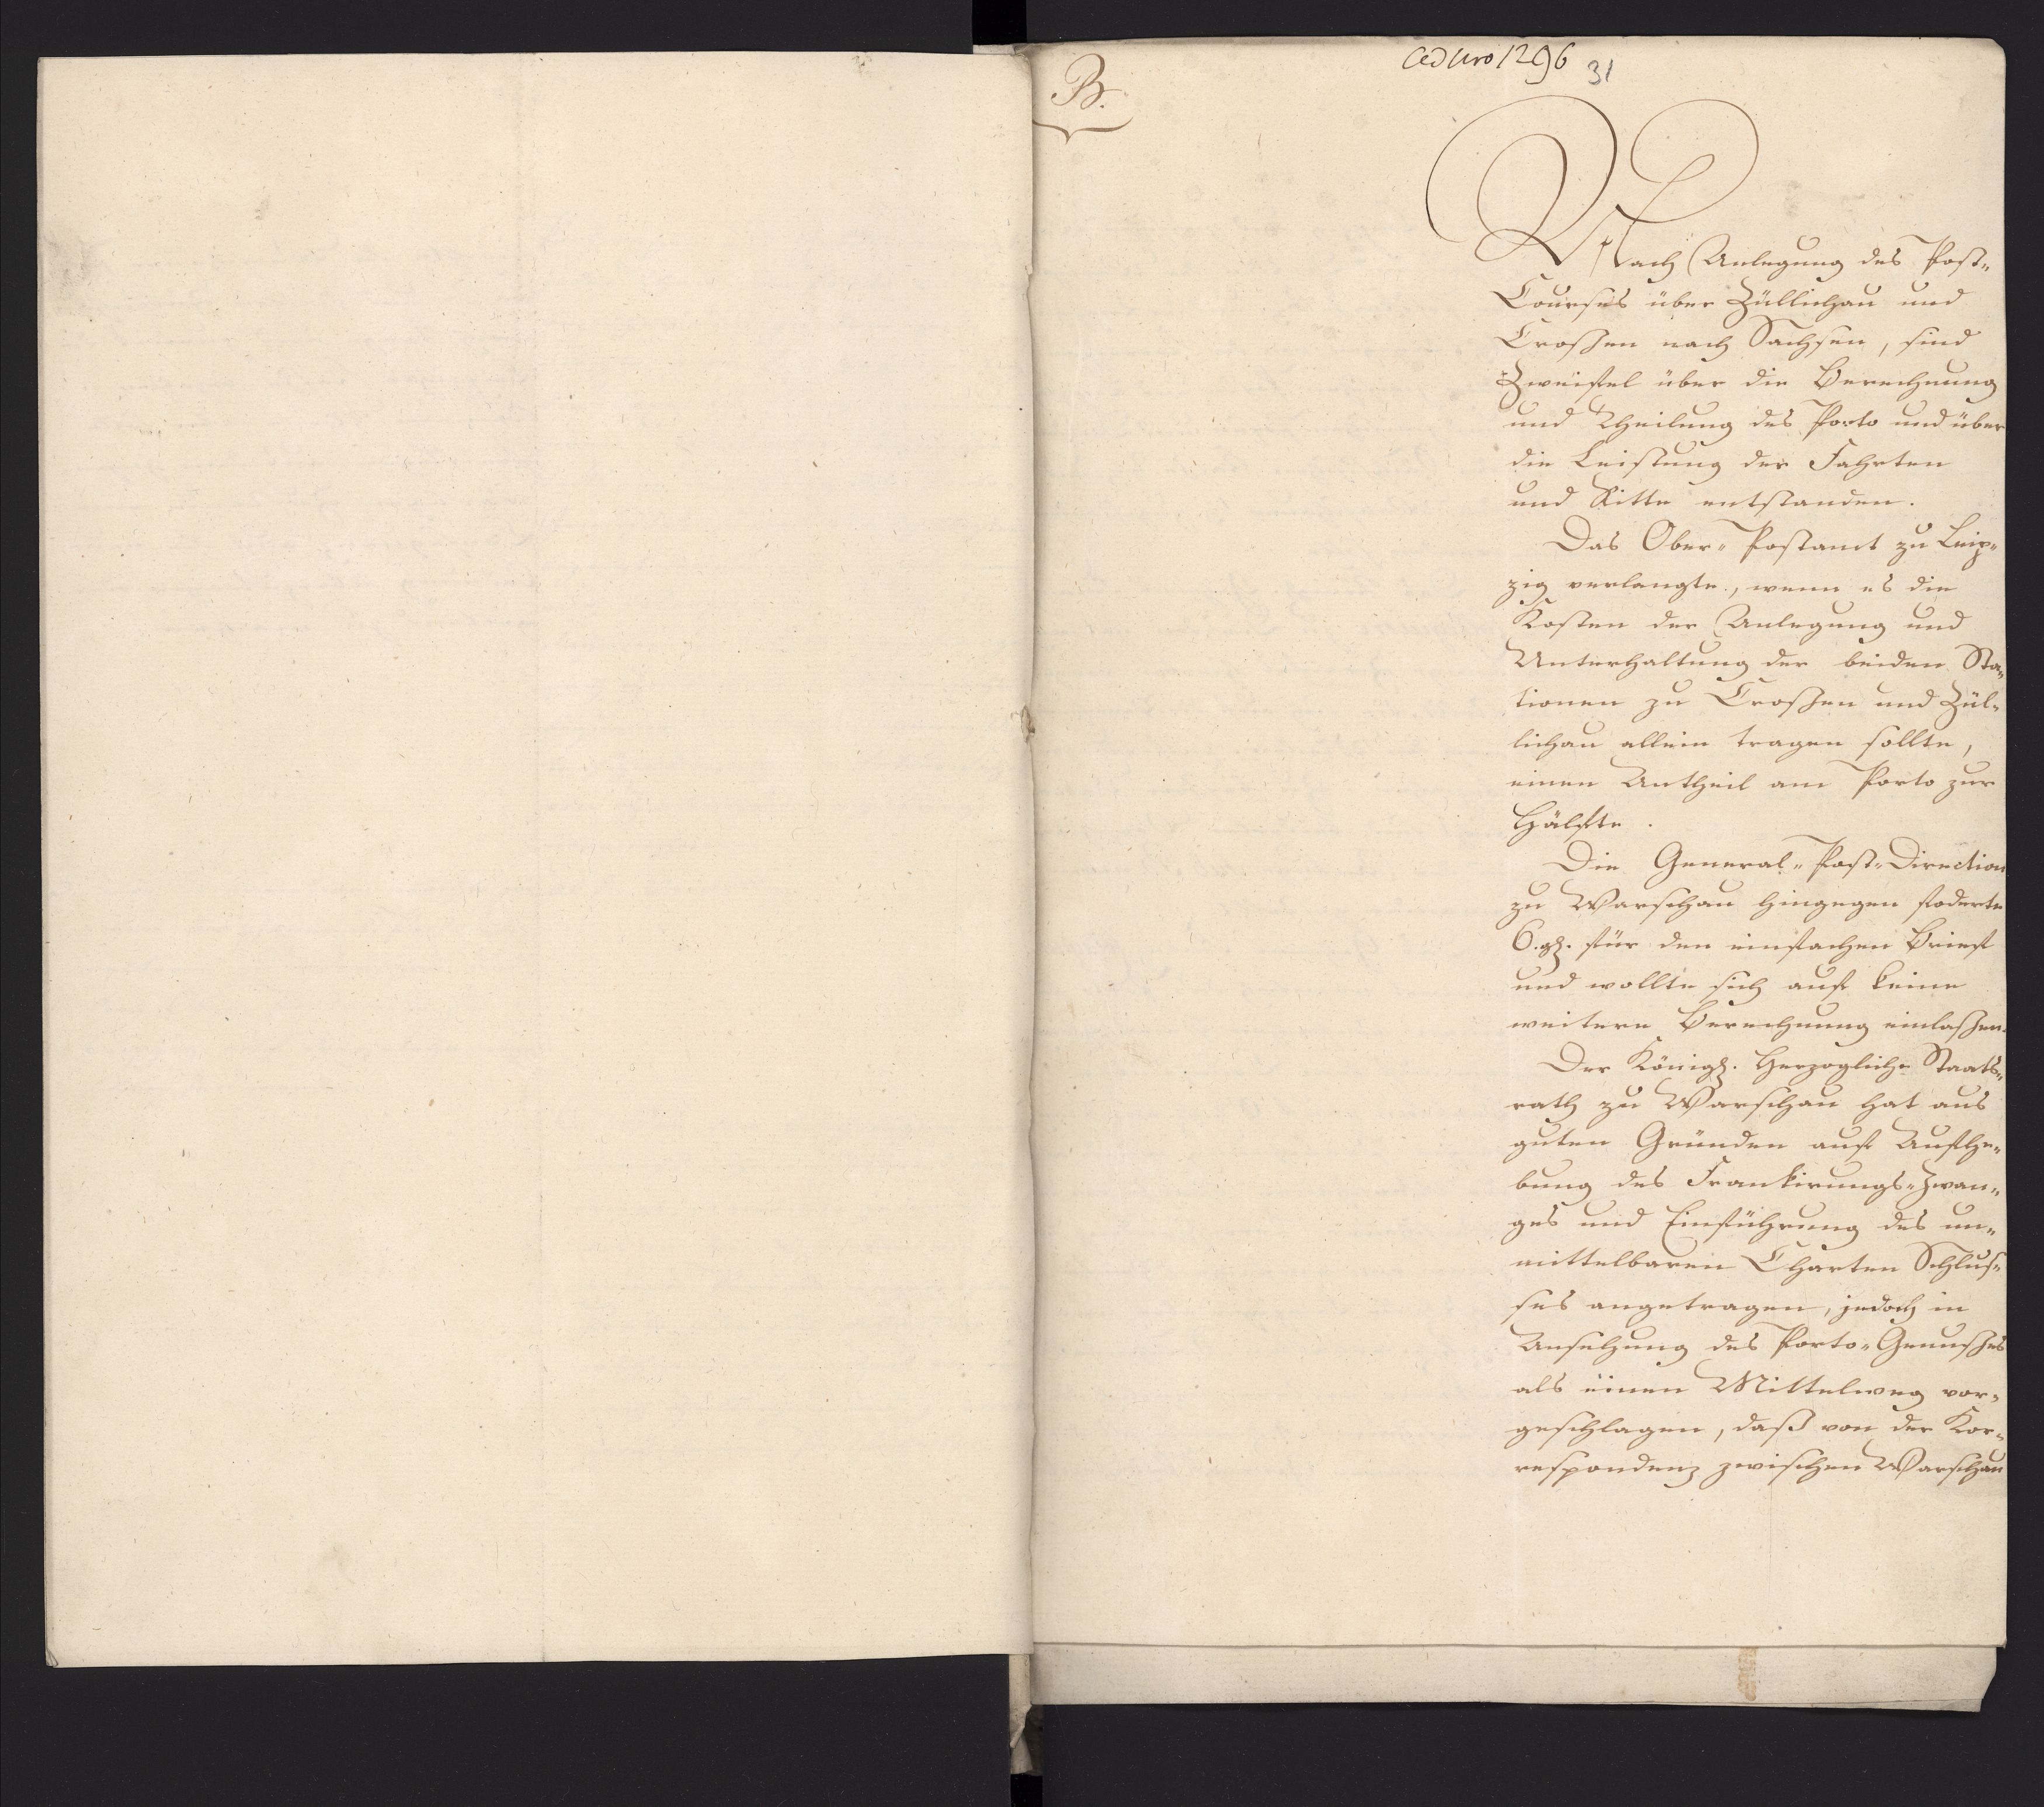 B.
ad Nro 1296
31
Nach Anlegung des Post-
Courses über Züllichau und
Croßen nach Sachsen, sind
Zweifel über die Berechnung
und Theilung des Porto und über
die Leistung der Fahrten
und Ritte entstanden.
Das Ober-Postamt zu Leip-
zig verlangte, wenn es die
Kosten der Anlegung und
Unterhaltung der beiden Sta-
tionen zu Croßen und Zül-
lichau allein tragen sollte,
einen Antheil am Porto zur
Hälfte.
Die General-Post-Direction
zu Warschau hingegen foderte
6. gl. für den einfachen Brief
und wollte sich auf keine
weitere Berechnung einlaßen.
Der Königl. Herzogliche Staats-
rath zu Warschau hat aus
guten Gründen auf Aufhe-
bung des Frankirungs-Zwan-
ges und Einführung des un-
mittelbaren Charten Schlus-
ses angetragen, jedoch in
Ansehung des Porto-Genußes
als einen Mittelweg vor-
geschlagen, daß von der Kor-
respondenz zwischen Warschau